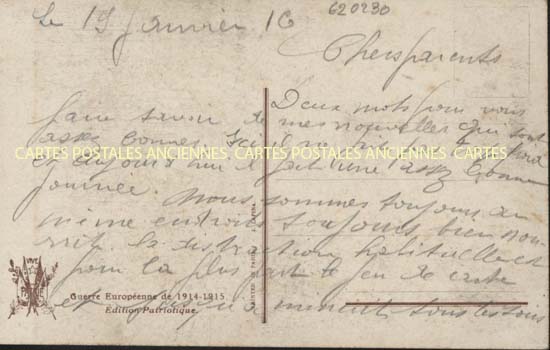 Le 19 Janvier 16
620230
Chers parents
Deux mots pour vous
faire savoir de mes nouvelles qui sont
assez bonnes
CARTES POSTALES ANCIENNES CARTES POSTALES ANCIENNES CARTES POSTALES ANCIENNES
et aujourd fait une assez bonne
journée. Nous sommes toujours au
même endroit toujours bien nou-
rrit. la distraction habituelle est
pour la plus part le jeu de carte
et jusqu'a minuit tous les soirs
VIVE
Guerre Européenne de 1914-1915.
Edition Patriotique.